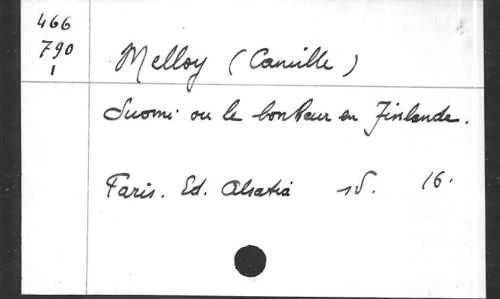 466
790
1
Melloy (Camille)
Suomi ou le bonheur en Finlande.
Paris. Ed. Alsatia sd. 16.